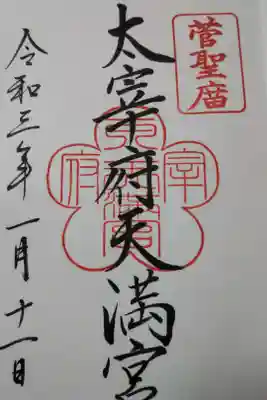 菅聖庿
太宰府天満宮
令和三年一月十一日